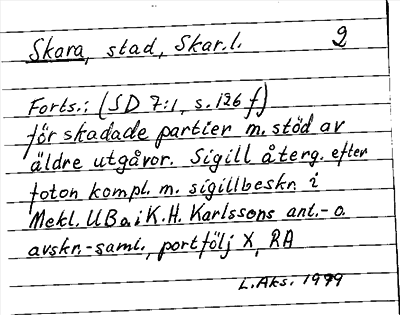 Skara, stad, Skar.l. 2
Forts.: (SD 7:1, s. 126 f)
för skadade partier m. stöd av
äldre utgåvor. Sigill återg. efter
foton kompl. m. sigillbeskr. i
Mekl. UB o. i K.H. Karlssons ant.- o.
avskr.-saml., portfölj X, RA
L. Aks. 1979